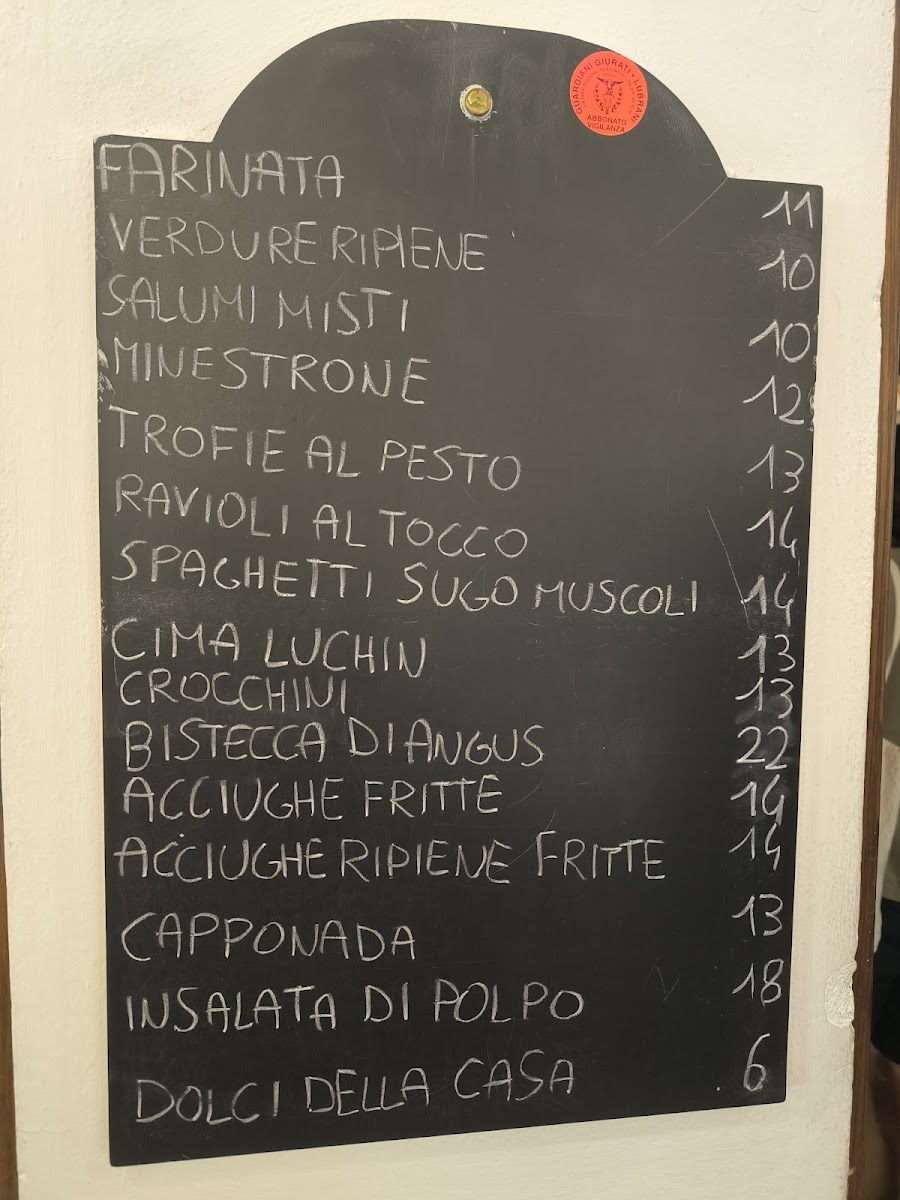 GUARDIANI GIURATI • LUBRANI
ABBONATO
VIGILANZA
FARINATA 11
VERDURE RIPIENE 10
SALUMI MISTI 10
MINESTRONE 12
TROFIE AL PESTO 13
RAVIOLI AL TOCCO 14
SPAGHETTI SUGO MUSCOLI 14
CIMA LUCHIN 13
CROCCHINI 13
BISTECCA DI ANGUS 22
ACCIUGHE FRITTE 14
ACCIUGHE RIPIENE FRITTE 14
CAPPONADA 13
INSALATA DI POLPO 18
DOLCI DELLA CASA 6